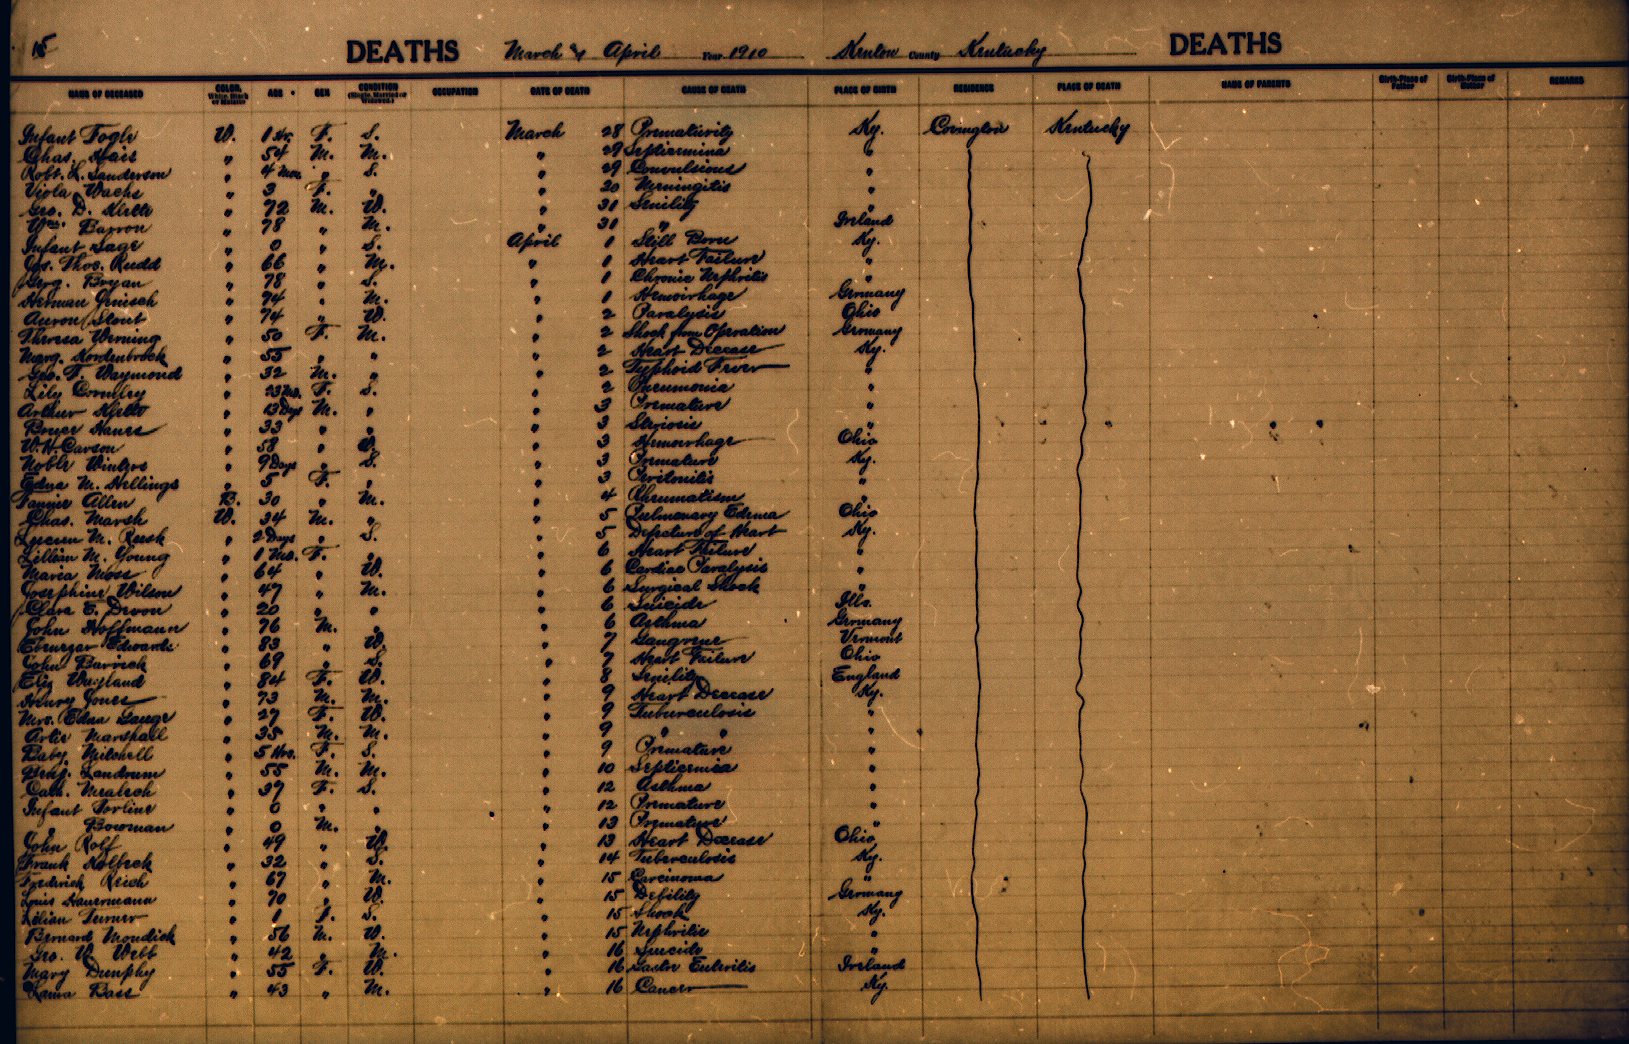 15 DEATHS March & April Year 1910 Kenton County Kentucky DEATHS
NAME OF DECEASED COLOR, White, Black or Mulatto AGE SEX CONDITION (Single, Married or Widowed.) OCCUPATION DATE OF DEATH CAUSE OF DEATH PLACE OF BIRTH RESIDENCE PLACE OF DEATH NAME OF PARENTS Birth-Place of Father Birth-Place of Mother REMARKS
Infant Fogle W. 1 Hr. F. S. March 28 Prematurity Ky. Covington Kentucky
Chas. Hais " 54 M. M. " 29 Septicemina "
Robt. L. Sanderson " 4 Mos. " S. " 29 Convulsions "
Viola Wachs " 3 F. " " 30 Meningitis "
Geo. D. Klette " 72 M. W. " 31 Senility "
Wm. Barron " 78 " M. " 31 " Ireland
Infant Sage " 0 " S. April 1 Still Born Ky.
Jos. Thos. Rudd " 66 " M. " 1 Heart Failure "
Bryan " 78 " S. " 1 Chronic Nephritis "
Herman " 74 " M. " 1 Hemorrhage Germany
Auron Stout " 74 " W. " 2 Paralysis Ohio
Theresa Werning " 50 F. M. " 2 Shock from Operation Germany
Marg. Nordenbrock " 55 " " " 2 Heart Decease Ky.
Geo. F. Waymond " 32 M. " " 2 Typhoid Fever "
Lily " 23 Mo. F. S. " 2 Pneumonia "
Arthur Klette " 13 Days M. " " 3 Premature "
Hanes " 33 " " " 3 "
W. H. Carson " 58 " W. " 3 Hemorrhage Ohio
Noble Winters " 9 Days " S. " 3 Premature Ky.
Edna M. Hellings " 5 F. " " 3 Peritonitis "
Fannie Allen B. 30 " M. " 4 Rheumatism "
Chas. Marsh W. 34 M. " " 5 Pulmonary Edema Ohio
M. Rusk " 2 Days " S. " 5 of Heart Ky.
Lillian M. Young " 1 Mo. F. " " 6 Heart Failure "
Maria Moss " 64 " W. " 6 Cardiac Paralysis "
Josephine Wilson " 47 " M. " 6 Surgical Shock "
Clara E. Devon " 20 " " " 6 Suicide Ills.
John Hoffmann " 76 M. " " 6 Asthma Germany
Ebenezar Edwards " 83 " W. " 7 Gangrene Vermont
John Barrick " 69 " S. " 7 Heart Failure Ohio
Eliz Wayland " 84 F. W. " 8 Senility England
Henry Jones " 73 M. M. " 9 Heart Decease Ky.
Mrs. Edna Gauge " 27 F. W. " 9 Tuberculosis "
Artie Marshall " 35 M. M. " 9 " " "
Baby Mitchell " 5 Hrs. F. S. " 9 Premature "
Benj. Landrum " 55 M. M. " 10 Septicemia "
Cath. " 37 F. S. " 12 Asthma "
Infant Torline " 0 " " " 12 Premature "
" Bowman " 0 M. " " 13 Premature "
John Rolf " 49 " W. " 13 Heart Decease Ohio
Frank Kolbeck " 32 " S. " 14 Tuberculosis Ky.
Fredrick Reich " 67 " M. " 15 Carcinoma "
Louis Hauermann " 70 " W. " 15 Debility Germany
Lilian Turner " 1 F. S. " 15 Shock Ky.
Bernard Mondick " 56 M. W. " 15 Nephritis "
Geo. W. Webb " 42 " M. " 16 Suicide "
Mary Dunphy " 55 F. W. " 16 Gastro Enteritis Ireland
Bass " 43 " M. " 16 Cancer Ky.